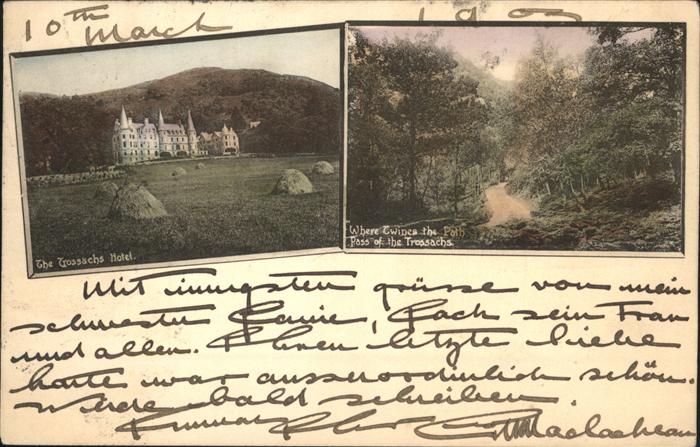 10th March 190
The Trossachs Hotel.
Where Twines the Path
Pass of the Trossachs.
Mit innigsten grüsse von mein
schwester, Jack sein Frau
und allen. Ihren letzte liebe
karte war ausserordinlich schön.
Werde bald schreiben.
Maclachlan